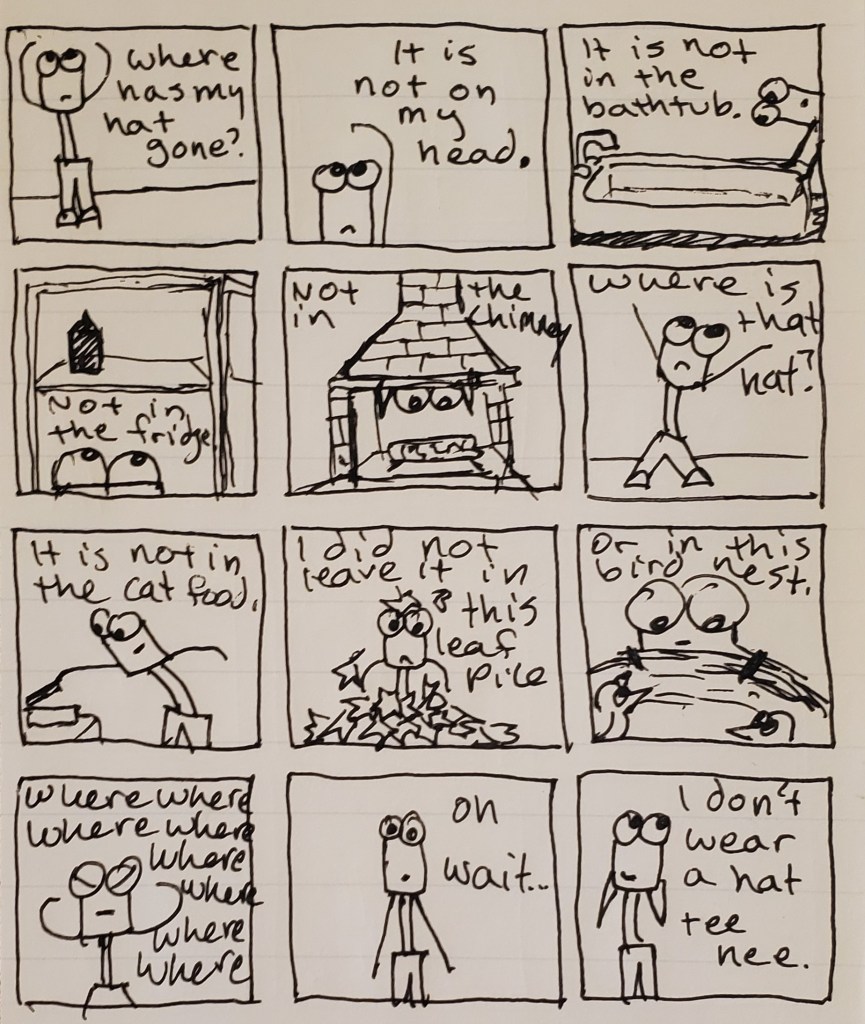 where
has my
hat
gone?
It is
not on
my
head.
It is not
in the
bathtub.
Not in
the fridge
Not the
in chimney
where is
that
hat?
It is not in
the cat food.
I did not
leave it in
this
leaf
pile
Or in this
bird nest.
where where
where where
where
where
where
where
oh
wait..
I don't
wear
a hat
tee
hee.